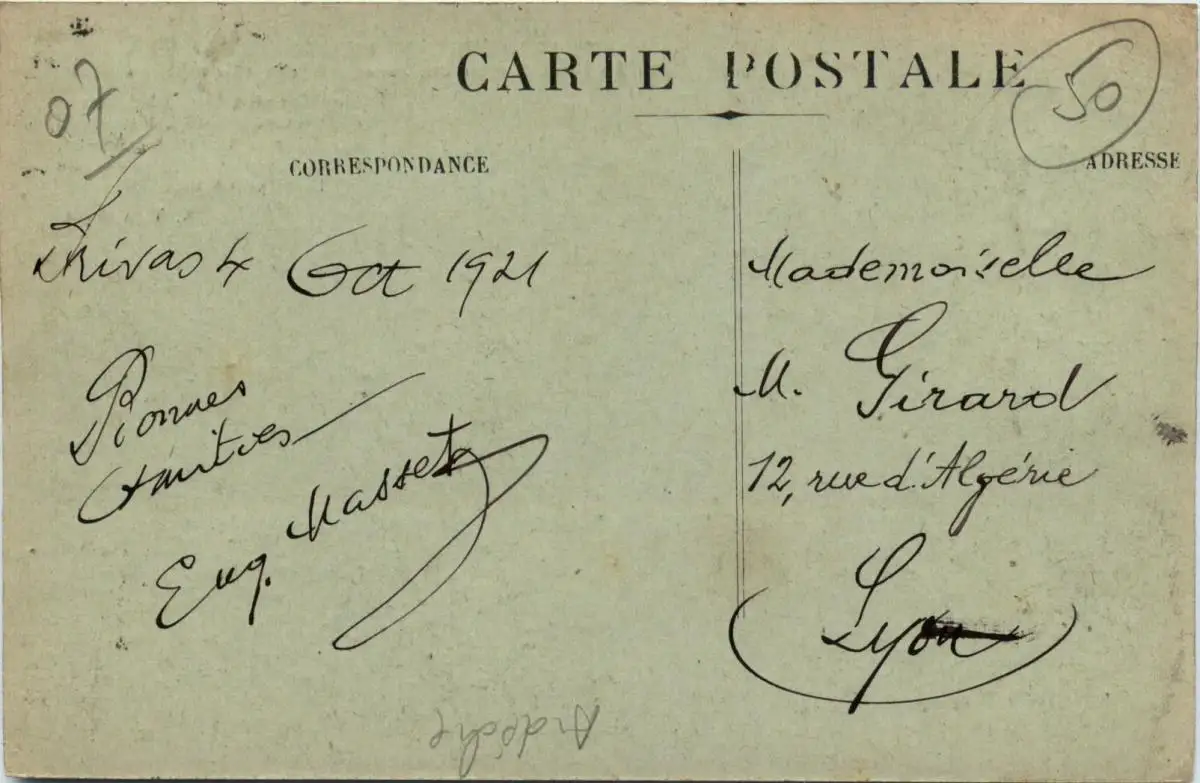 07
CARTE POSTALE
50
CORRESPONDANCE
ADRESSE
Privas 4 Oct 1921
Bonnes
Amitiés
Eug. Masset
Mademoiselle
M. Girard
12, rue d'Algérie
Lyon
Ardèche